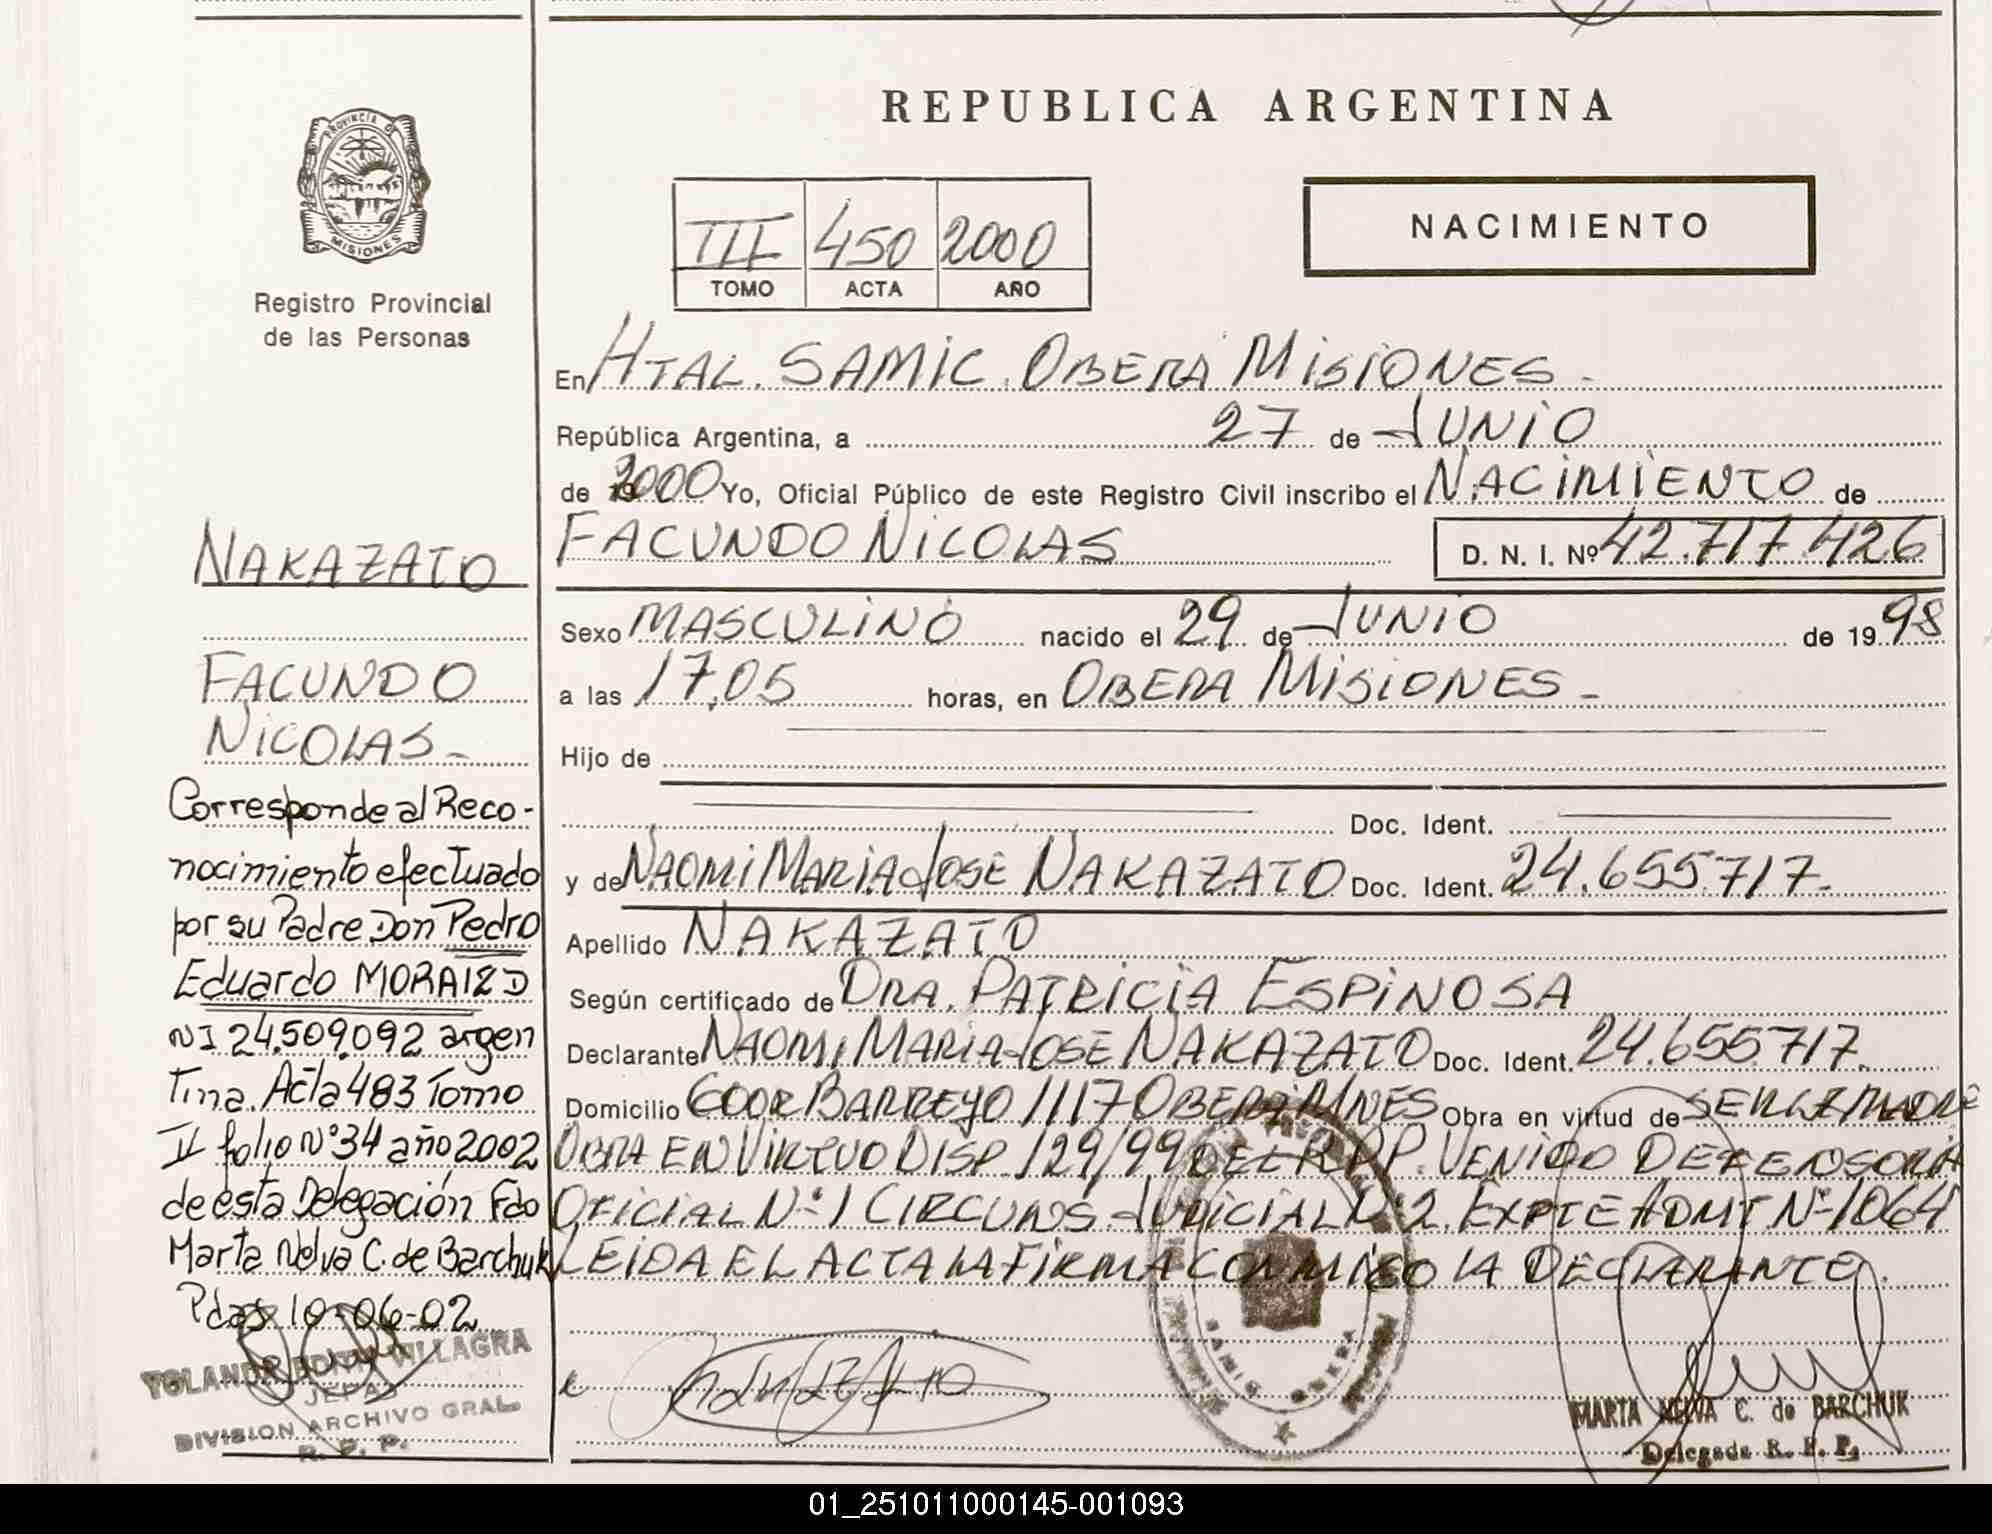 PROVINCIA D
MISIONES
Registro Provincial
de las Personas
NAKAZATO
FACUNDO
NICOLAS -
Corresponde al Reco-
nocimiento efectuado
por su Padre Don Pedro
Eduardo MORAIZ D
NI 24.509.092 argen
Tina. Acta 483 Tomo
II folio Nº 34 año 2002
de esta Delegación Fdo
Marta Nelva C. de Barchuk
Pdas 10-06-02
YOLANDA EDITH VILLAGRA
JEFA
DIVISION ARCHIVO GRAL.
R. P. P.
REPUBLICA ARGENTINA
III 450 2000
TOMO ACTA AÑO
NACIMIENTO
En HTAL. SAMIC. OBERA MISIONES -
República Argentina, a 27 de JUNIO
de 2000 Yo, Oficial Público de este Registro Civil inscribo el NACIMIENTO de
FACUNDO NICOLAS D. N. I. Nº 42.717.426
Sexo MASCULINO nacido el 29 de JUNIO de 1998
a las 17,05 horas, en OBERA MISIONES -
Hijo de
Doc. Ident.
y de NAOMI MARIA JOSE NAKAZATO Doc. Ident. 24.655.717-
Apellido NAKAZATO
Según certificado de DRA. PATRICIA ESPINOSA
Declarante NAOMI MARIA JOSE NAKAZATO Doc. Ident. 24.655.717.
Domicilio BARREYO 1117 OBERA MNES Obra en virtud de SER LA MADRE
OBRA EN VIRTUD DISP. 129/99 DEL RPP. VENIDO DEFENSORIA
OFICIAL Nº 1 CIRCUNS. JUDICIAL Nº 2. EXPTE ADMT Nº 1064
LEIDA EL ACTA LA FIRMA CONMIGO LA DECLARANTE.
SAMIC OBERA
MARTA NELVA C. de BARCHUK
Delegada R. P. P.
01_251011000145-001093